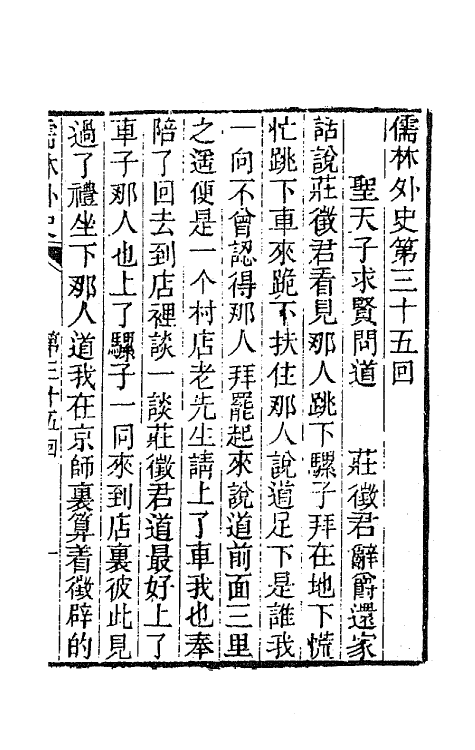 儒林外史第三十五回
聖天子求賢問道　莊徵君辭爵還家
話說莊徵君看見那人跳下騾子拜在地下慌
忙跳下車來跪下扶住那人說道足下是誰我
一向不曾認得那人拜罷起來說道前面三里
之遥便是一个村店老先生請上了車我也奉
陪了回去到店裡談一談莊徵君道最好上了
車子那人也上了騾子一同來到店裏彼此見
過了禮坐下那人道我在京師裏算着徵辟的
儒林外史　第三十五回　一